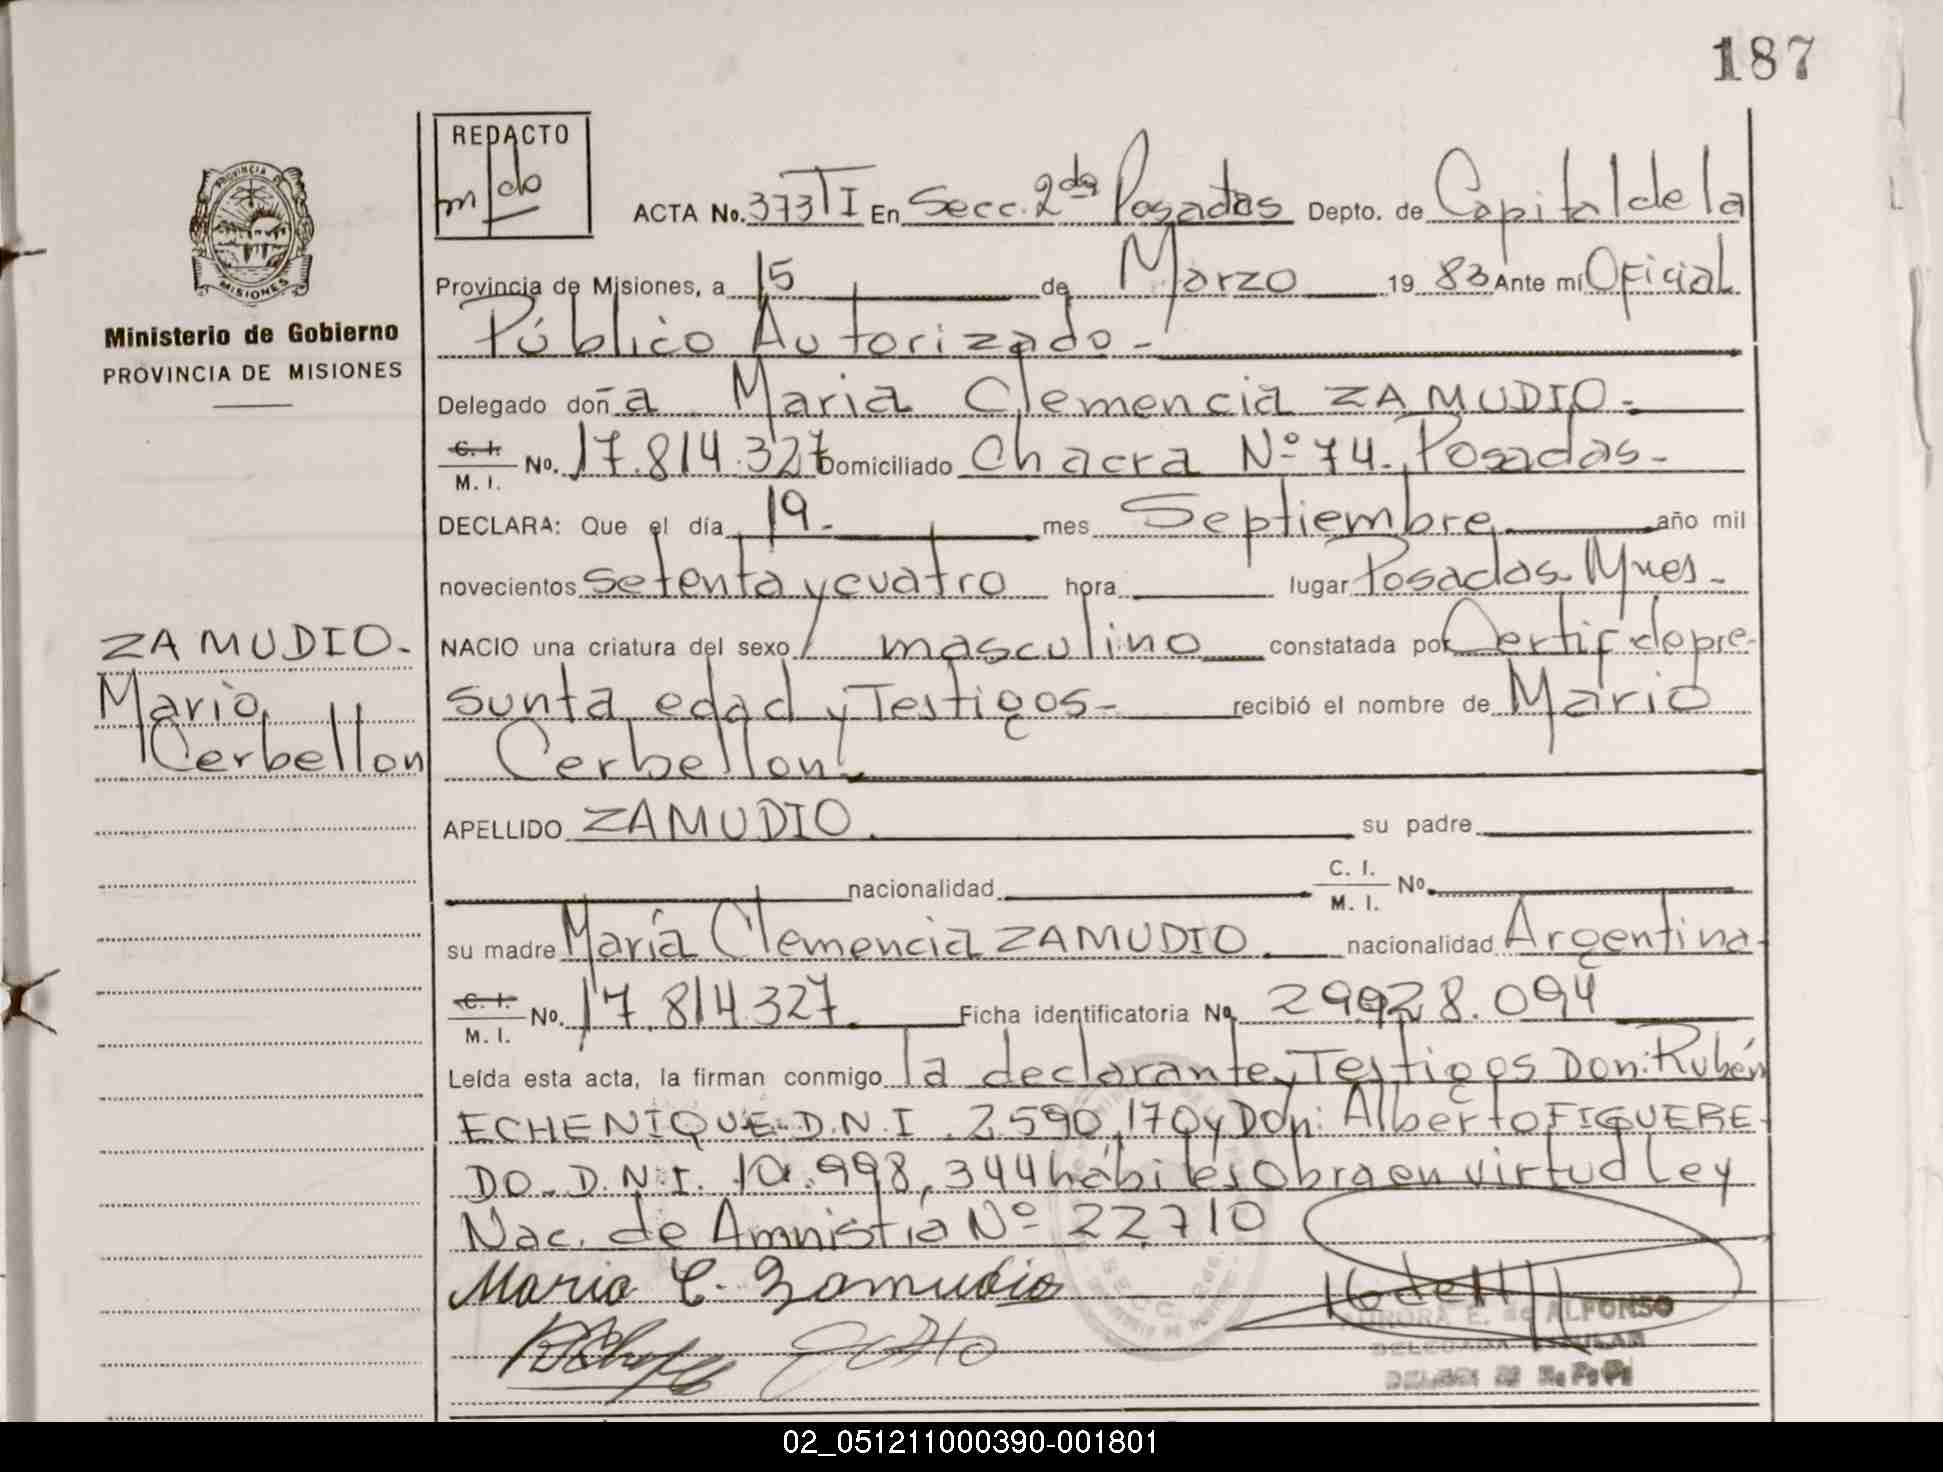 187
REDACTO
m/do
ACTA No. 373TI En Secc. 2da Posadas Depto. de Capital de la
Provincia de Misiones, a 15 de Marzo 19 83 Ante mí Oficial
Público Autorizado-
Delegado doña Maria Clemencia ZAMUDIO.-
C. I. M. I. No. 17.814.327 Domiciliado Chacra Nº 74. Posadas-
DECLARA: Que el día 19- mes Septiembre año mil
novecientos setenta y cuatro hora lugar Posadas. Mnes-
NACIO una criatura del sexo masculino constatada por Certif de pre-
sunta edad y Testigos- recibió el nombre de Mario
Cerbellon
APELLIDO ZAMUDIO. su padre
nacionalidad C. I. M. I. No.
su madre María Clemencia ZAMUDIO nacionalidad Argentina-
C. I. M. I. No. 17.814.327 Ficha identificatoria No.
Leída esta acta, la firman conmigo la declarante y Testigos Don: Rubén
ECHENIQUE- D.N.I. 2.590,170 y Don: Alberto FIGUERE-
DO- D.N.I. 10.998,344 hábiles Obra en virtud Ley
Nac. de Amnistía Nº 22.710
Maria C. Zamudio
AURORA E. de ALFONSO
DELEGADA TITULAR
PROVINCIA DE
MISIONES
Ministerio de Gobierno
PROVINCIA DE MISIONES
ZAMUDIO-
Mario
Cerbellon
02_051211000390-001801